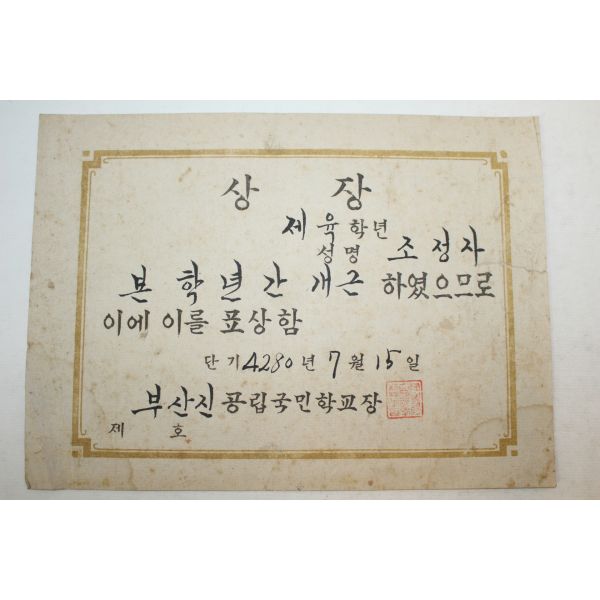 상 장
제 육 학년
성명 조정자
본 학년간 개근 하였으므로
이에 이를 표상함
단기 4280년 7월 15일
부산진 공립국민학교장
제 호